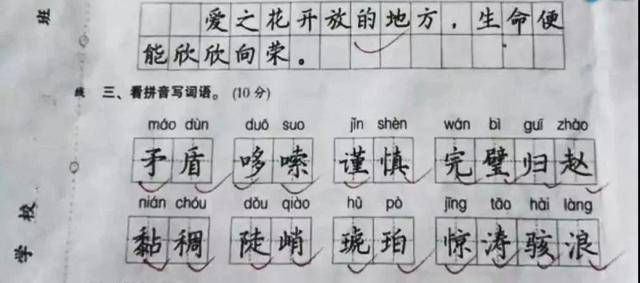 爱之花开放的地方，生命便
能欣欣向荣。
三、看拼音写词语。(10分)
máo dùn duō suo jǐn shèn wán bì guī zhào
矛盾 哆嗦 谨慎 完璧归赵
nián chóu dǒu qiào hǔ pò jīng tāo hài làng
黏稠 陡峭 琥珀 惊涛骇浪
班
线
学校